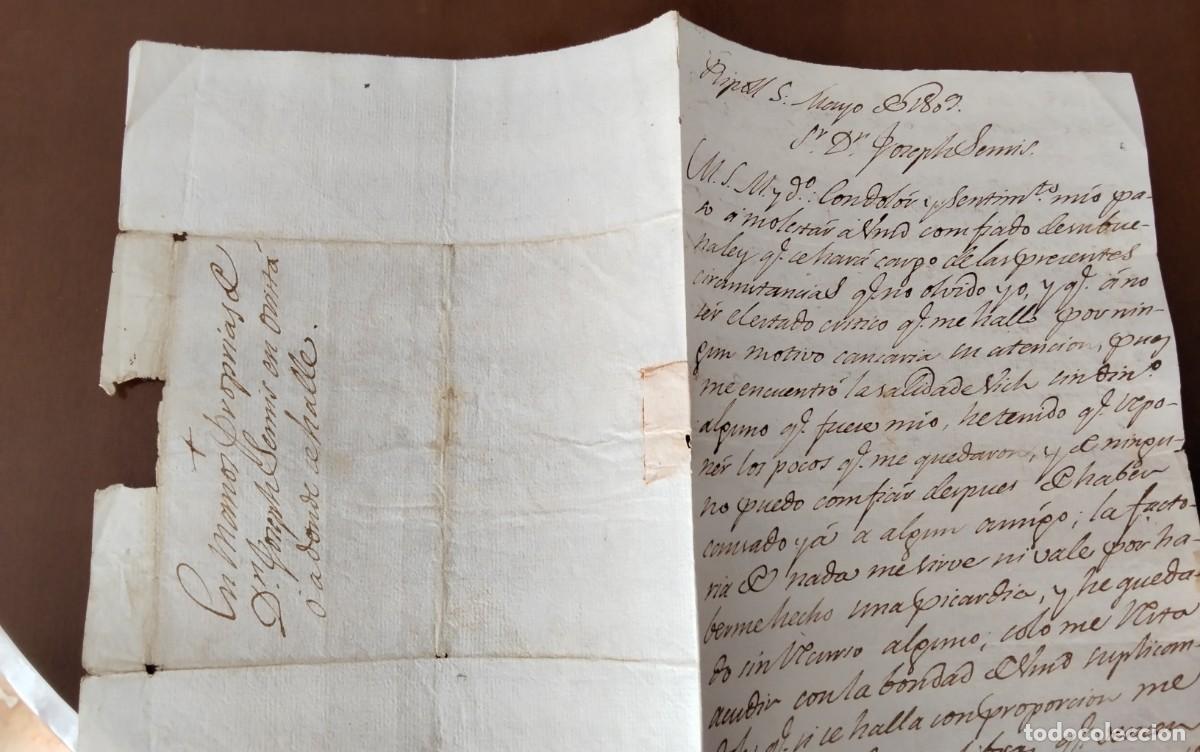 +
En Manos Proprias de
Dn. Joseph Semis en Orritá
ó adonde se halle.
Ripoll 5. Mayo de 1803.
Sr. Dn. Joseph Semis.
M. S. M. y do: Con dolór y sentimto. mio pa-
so á molestár a Vmd comfiado de su bue-
na ley qe. se hará cargo de las presentes
circunstancias qe. no olvido yo, y qe. á no
sér el estado critico qe. me hallo por nin-
gun motivo cansaria su atencion, pues
me encuentró la salida de Vich sin dino.
alguno qe. fuese mio, he tenido qe. repo-
nér los pocos qe. me quedaron, y de ningu-
no puedo comfiár despues de habér
cansado yá a algun amigo; la facto-
ria de nada me sirve ni vale por ha-
berme hecho una picardia, y he queda-
do sin recurso alguno; solo me resta
acudir con la bondad de Vmd suplican-
dole qe. si se halla con proporcion me
libras qe.
todocoleccion